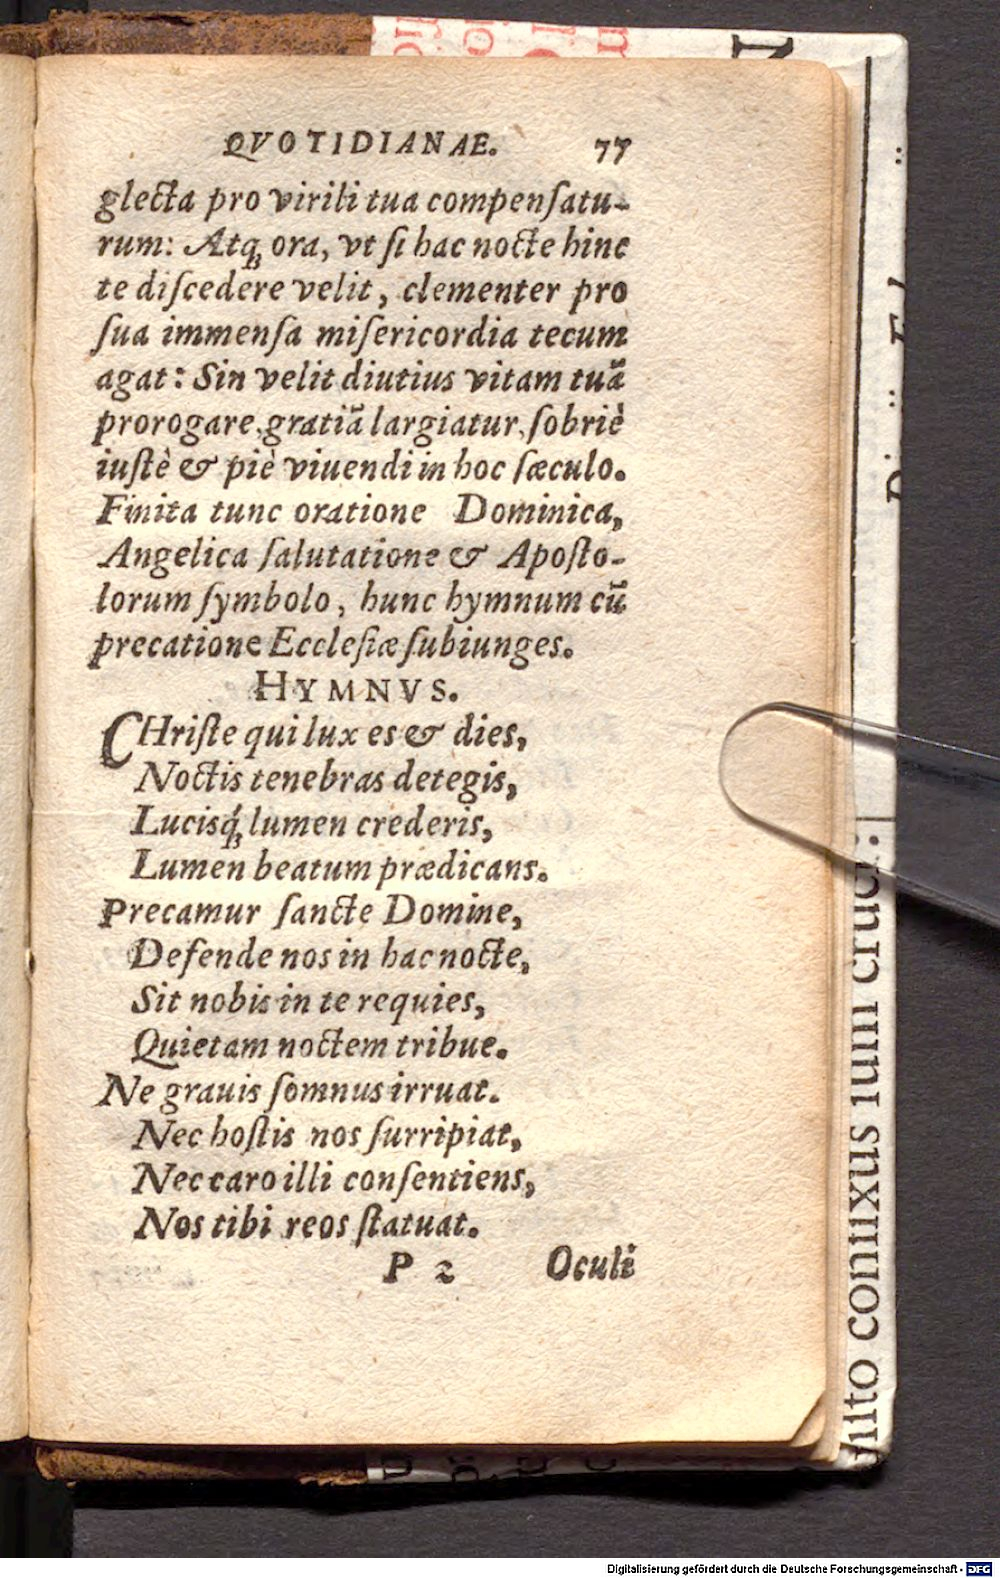 QVOTIDIANAE. 77
glecta pro virili tua compenſatu-
rum: Atq́; ora, vt ſi hac nocte hinc
te diſcedere velit, clementer pro
ſua immenſa miſericordia tecum
agat: Sin velit diutius vitam tuā
prorogare, gratiā largiatur, ſobriè
iuſtè & piè viuendi in hoc ſæculo.
Finita tunc oratione Dominica,
Angelica ſalutatione & Apoſto-
lorum ſymbolo, hunc hymnum cū
precatione Eccleſiæ ſubiunges.
HYMNVS.
CHriſte qui lux es & dies,
Noctis tenebras detegis,
Lucisq́; lumen crederis,
Lumen beatum prædicans.
Precamur ſancte Domine,
Defende nos in hac nocte,
Sit nobis in te requies,
Quietam noctem tribue.
Ne grauis ſomnus irruat.
Nec hoſtis nos ſurripiat,
Nec caro illi conſentiens,
Nos tibi reos ſtatuat.
P 2 Oculi
cruci:
Digitalisierung gefördert durch die Deutsche Forschungsgemeinschaft - DFG